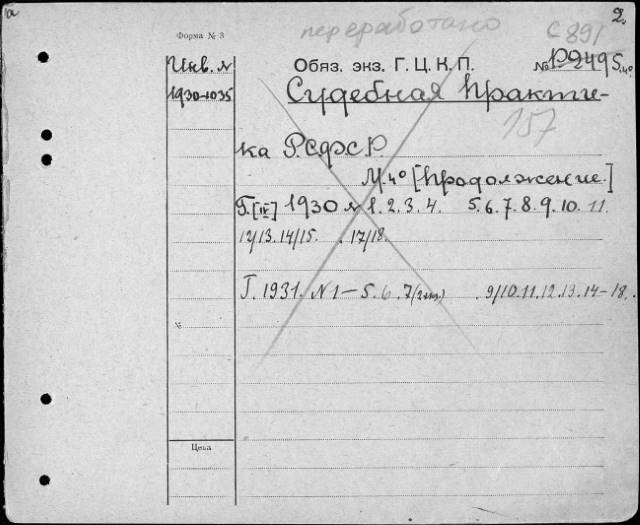 2.
Форма № 3
переработано
С 891
Инв. №
1930-1035
Обяз. экз. Г. Ц. К. П.
№ Р2495 4°
Судебная Практи-
157
ка РСФСР.
М. 4° [Продолжение]
Г. [IV] 1930 № 1. 2. 3. 4. 5. 6. 7. 8. 9. 10. 11.
12/13. 14/15. . 17/18.
Г. 1931. № 1 – 5. 6. 7 (2 экз) . 9/10. 11. 12. 13. 14 – 18.
№
Цена